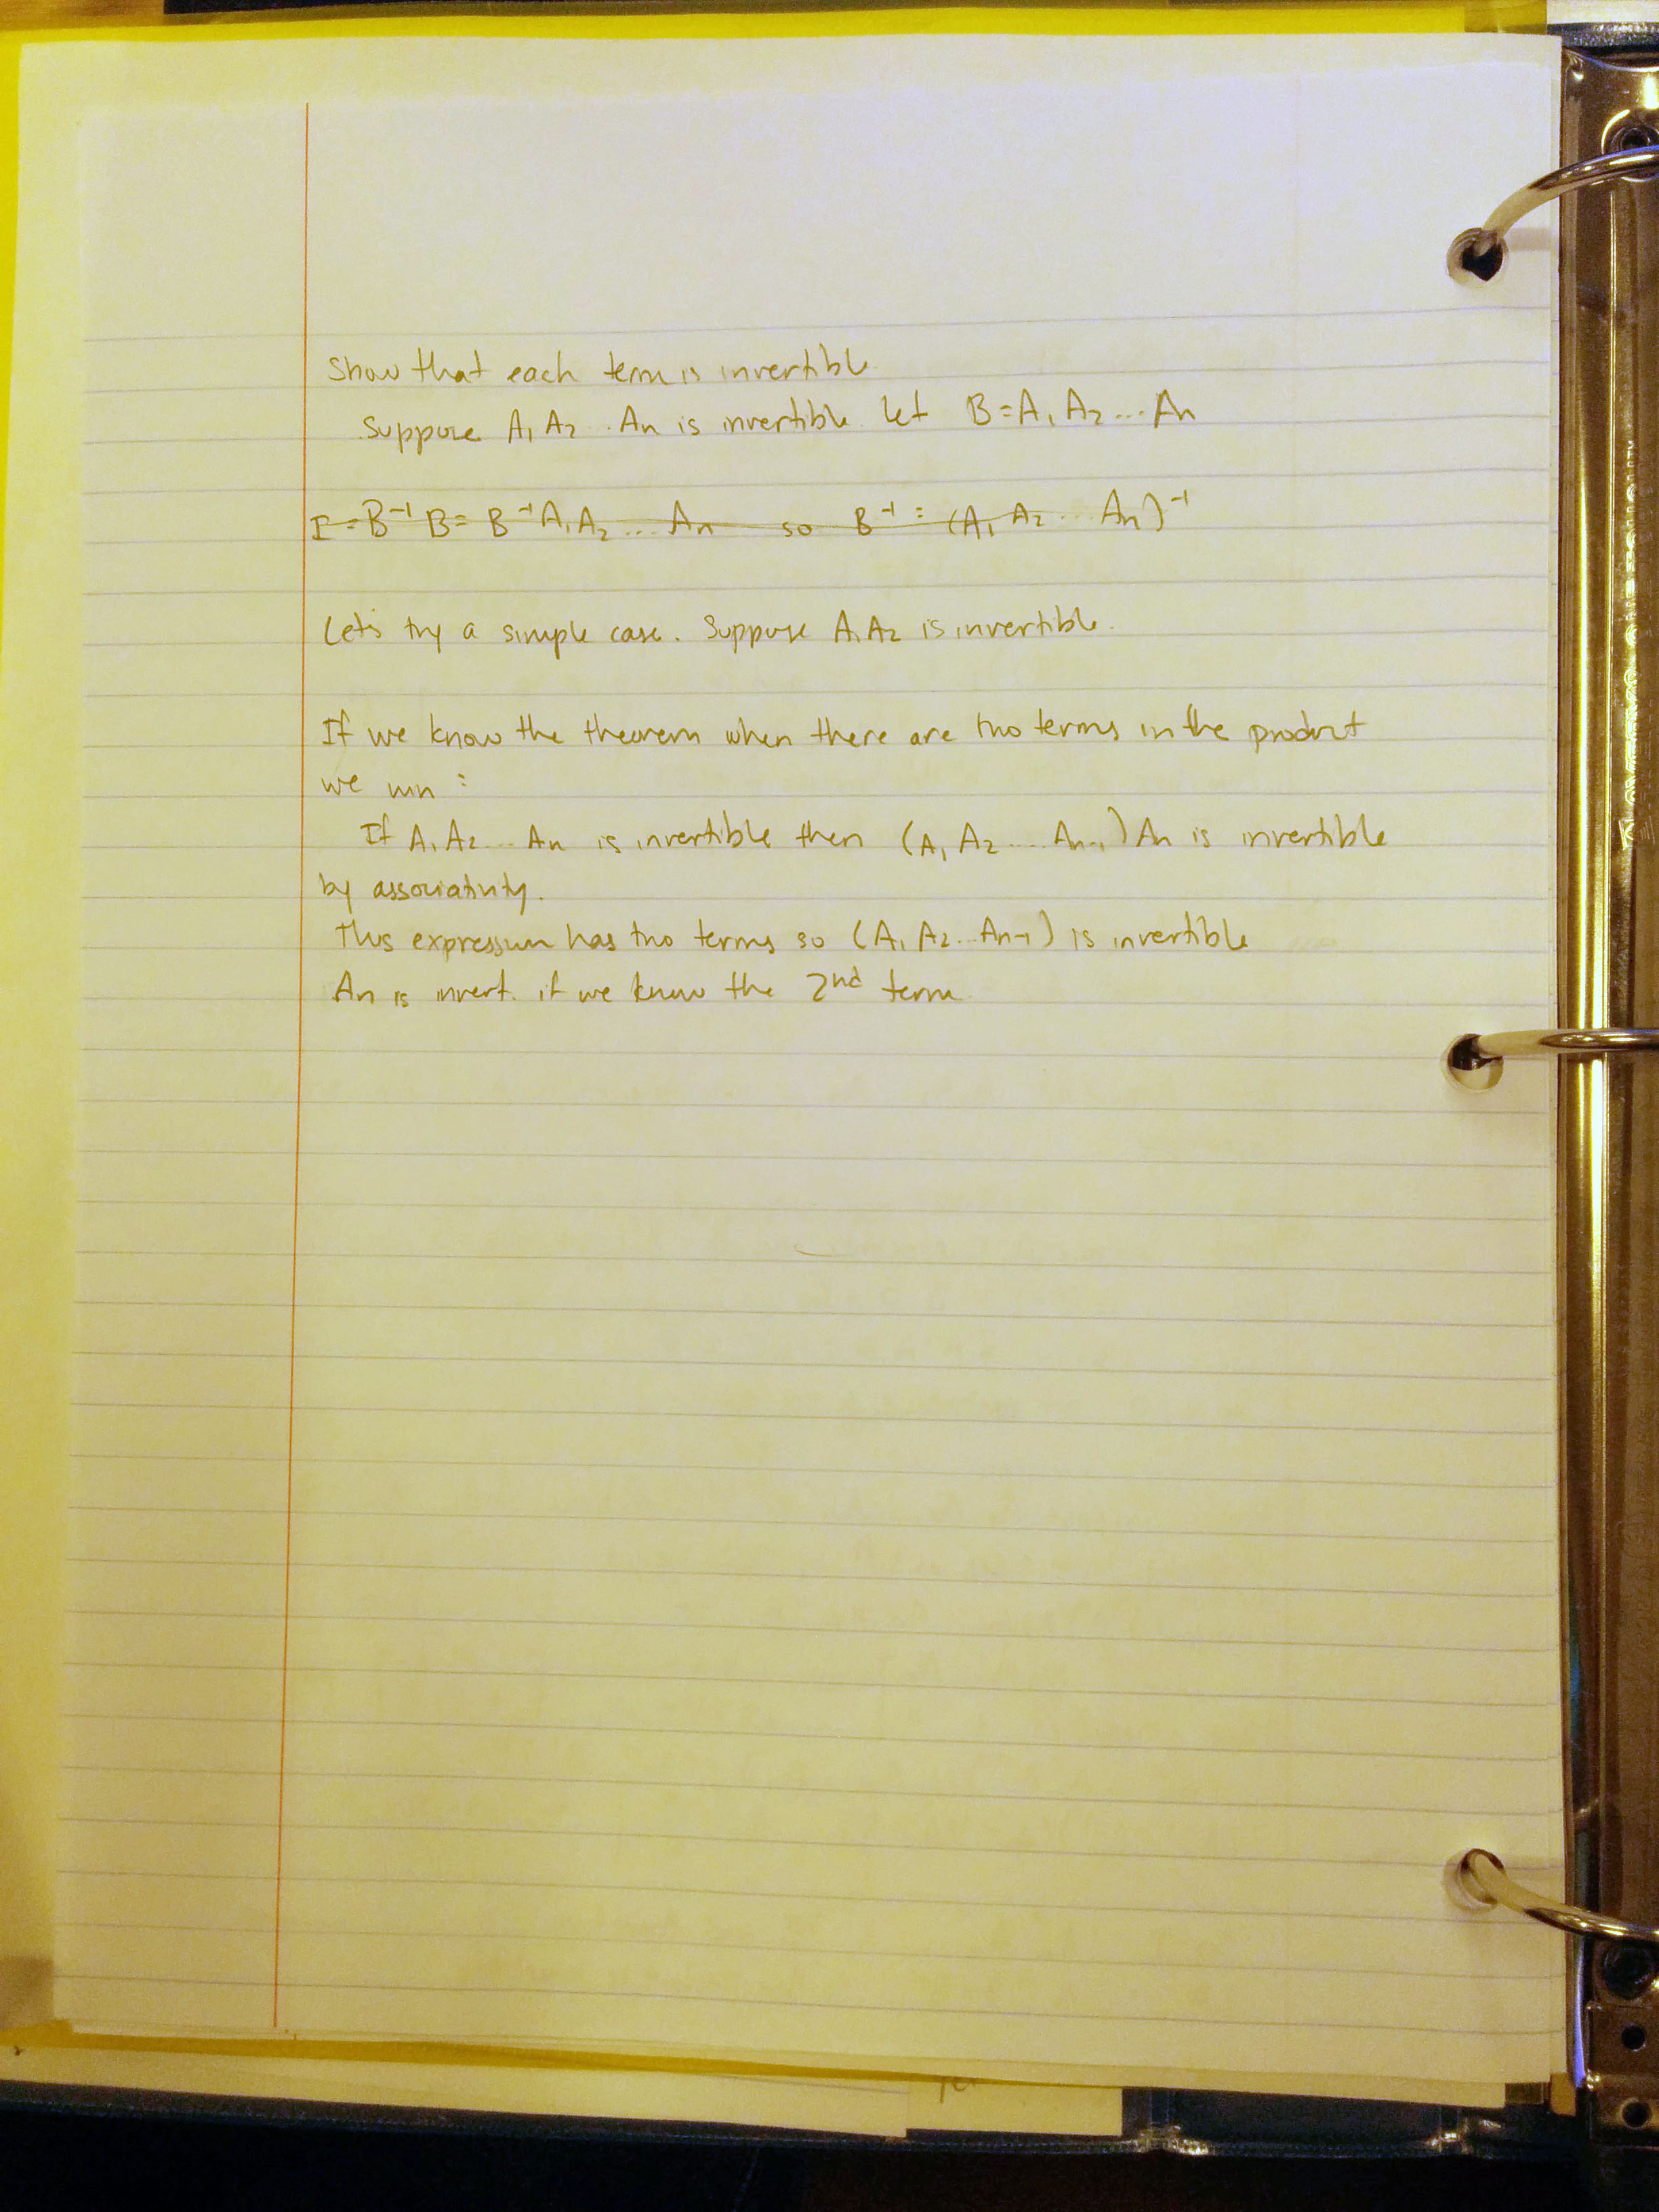 Show that each term is invertible
Suppose A₁ A₂ .. An is invertible. Let B = A₁ A₂ ... An
I = B⁻¹ B = B⁻¹ A₁ A₂ ... An so B⁻¹ = (A₁ A₂ ... An)⁻¹
Let's try a simple case. Suppose A₁ A₂ is invertible.
If we know the theorem when there are two terms in the product
we win :
If A₁ A₂ ... An is invertible then (A₁ A₂ ... An-1) An is invertible
by associativity.
This expression has two terms so (A₁ A₂ ... An-1) is invertible
An is invert. if we know the 2nd term